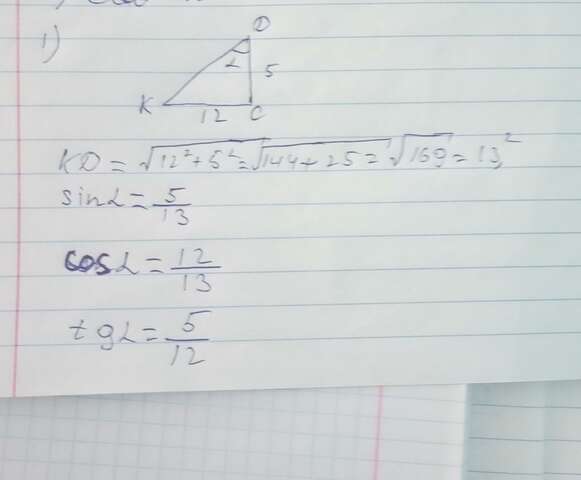 1)
D
α
5
K
12
C
KD = √12²+5² = √144+25 = √169 = 13²
sinα = 5/13
cosα = 12/13
tgα = 5/12